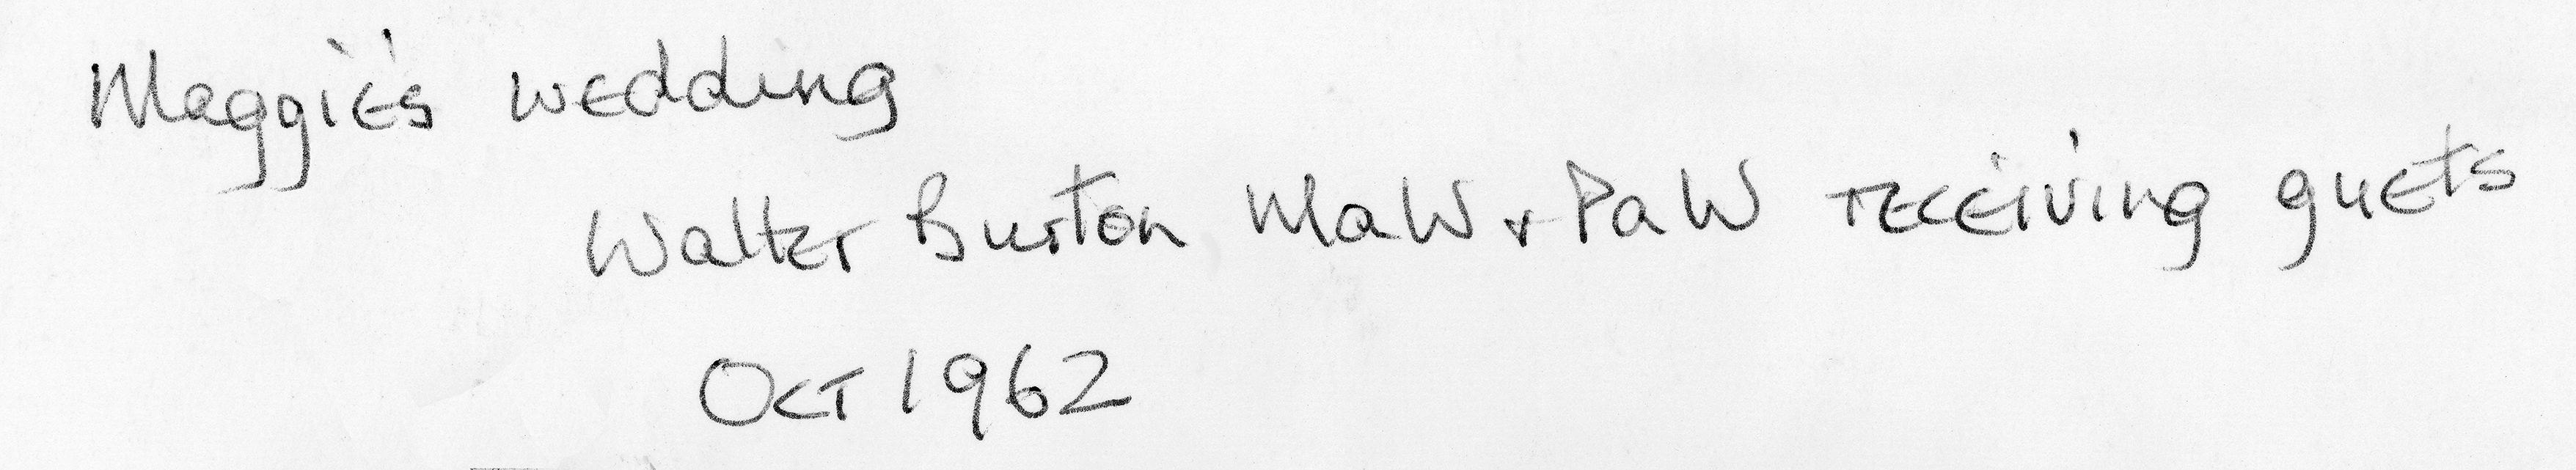 Maggie's wedding
Walter Burton MaW + PaW receiving guets
Oct 1962